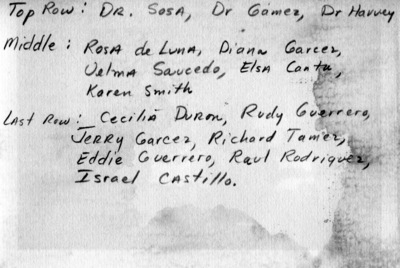 Top Row: DR. SOSA, Dr Gómez, Dr Harvey
Middle: ROSA de LUNA, Diana Garcez,
Velma Saucedo, ELSA Cantu,
Karen Smith
LAST ROW: Cecilia DURON, Rudy Guerrero,
JERRY Garcez, Richard Tamez,
Eddie Guerrero, Raul Rodriquez,
Israel CASTILLO.